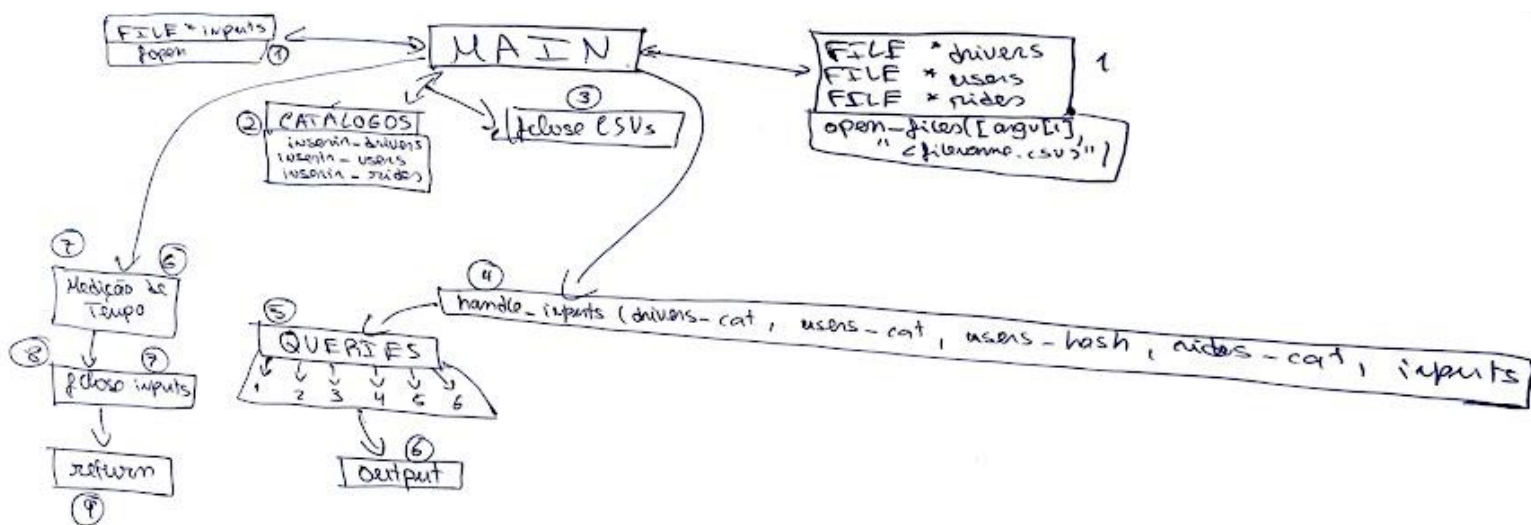 FILE * inputs
fopen
1
MAIN
FILE * drivers
FILE * users
FILE * rides
1
open_files([argv[1],
"<filename.csv>")
2
CATÁLOGOS
inserir_drivers
inserir_users
inserir_rides
3
fclose CSVs
7
6
Medição de
Tempo
8
7
fclose inputs
return
9
4
handle_inputs (drivers_cat, users_cat, users_hash, rides_cat, inputs
5
QUERIES
1 2 3 4 5 6
6
output